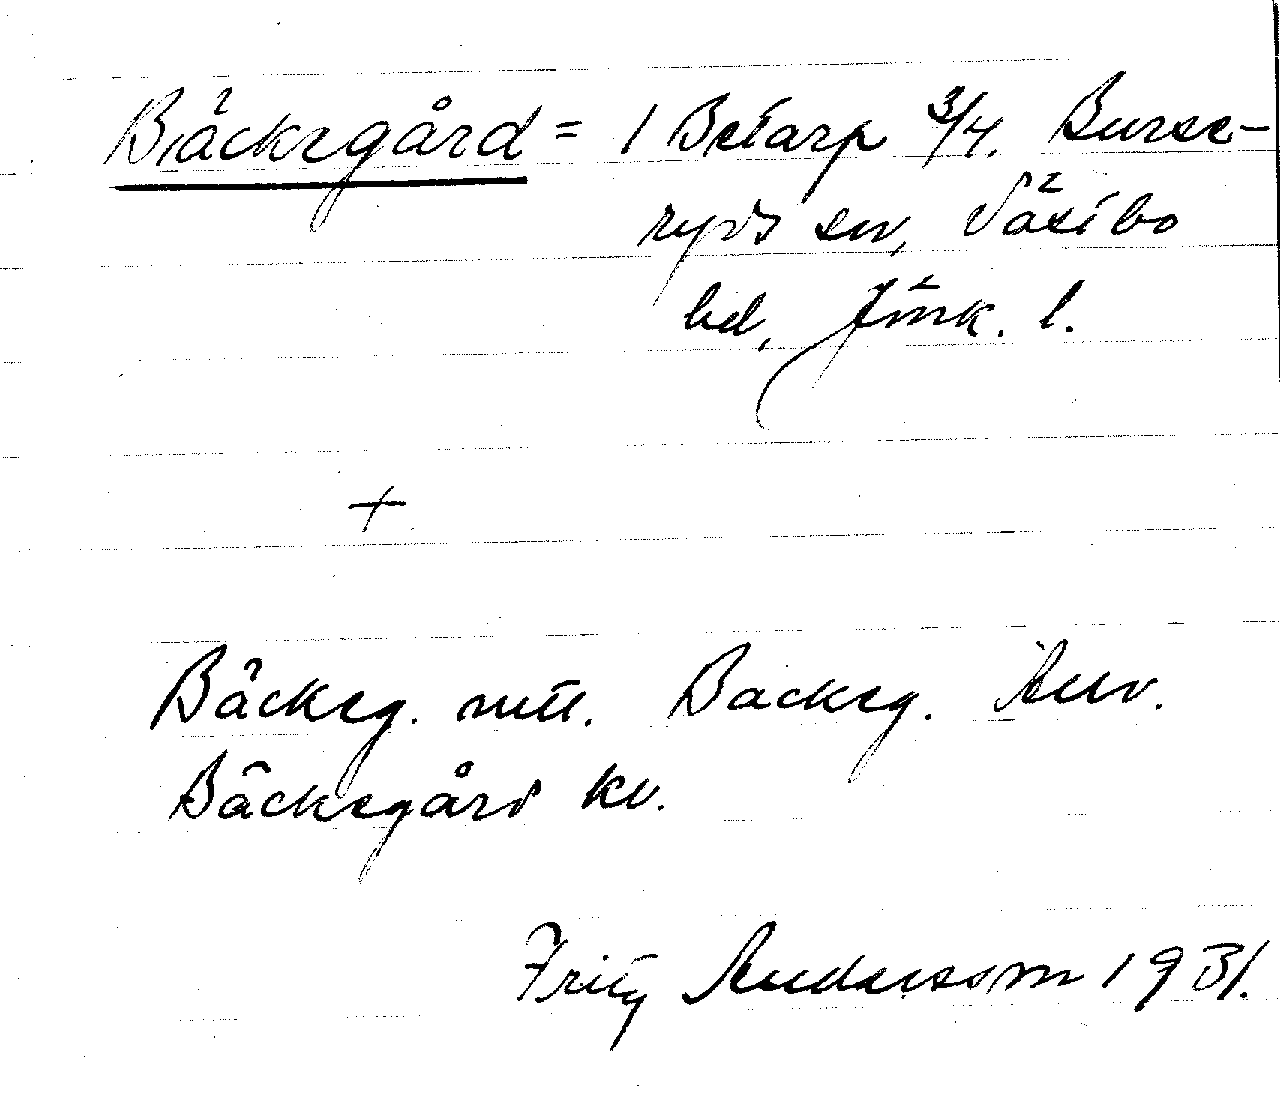 Bäcksgård = 1 Betarp 3/4. Burse-
ryds sn, Västbo
hd, Jönk. l.
+
Bäcksg. mtl. Backsg.
Bäcksgård kv.
Fritz Andersson 1931.